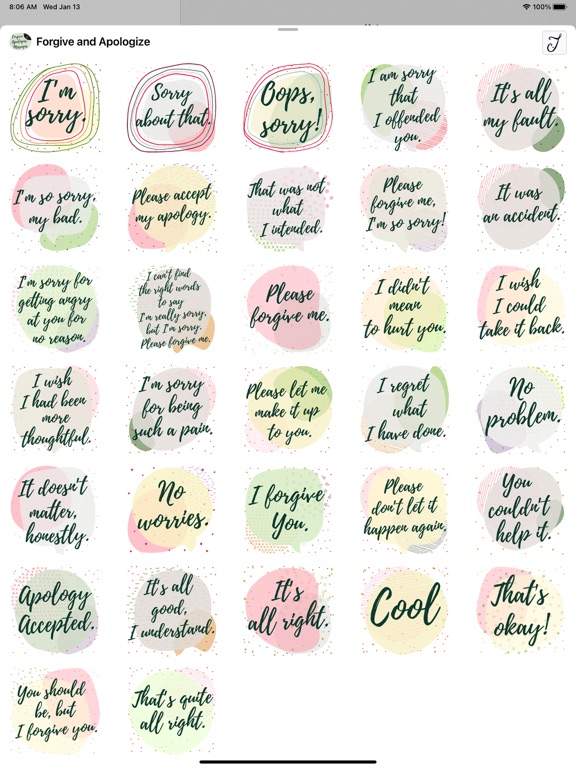 8:06 AM Wed Jan 13
100%
Forgive and Apologize
I'm
sorry.
Sorry
about that.
Oops,
sorry!
I am sorry
that
I offended
you.
It's all
my fault.
I'm so sorry,
my bad.
Please accept
my apology.
That was not
what
I intended.
Please
forgive me,
I'm so sorry!
It was
an accident.
I'm sorry for
getting angry
at you for
no reason.
I can't find
the right words
to say
I'm really sorry,
but I'm sorry.
Please forgive me.
Please
forgive me.
I didn't
mean
to hurt you.
I wish
I could
take it back.
I wish
I had been
more
thoughtful.
I'm sorry
for being
such a pain.
Please let me
make it up
to you.
I regret
what
I have done.
No
problem.
It doesn't
matter,
honestly.
No
worries.
I forgive
You.
Please
don't let it
happen again.
You
couldn't
help it.
Apology
Accepted.
It's all
good,
I understand.
It's
all right.
Cool
That's
okay!
You should
be, but
I forgive you.
That's quite
all right.